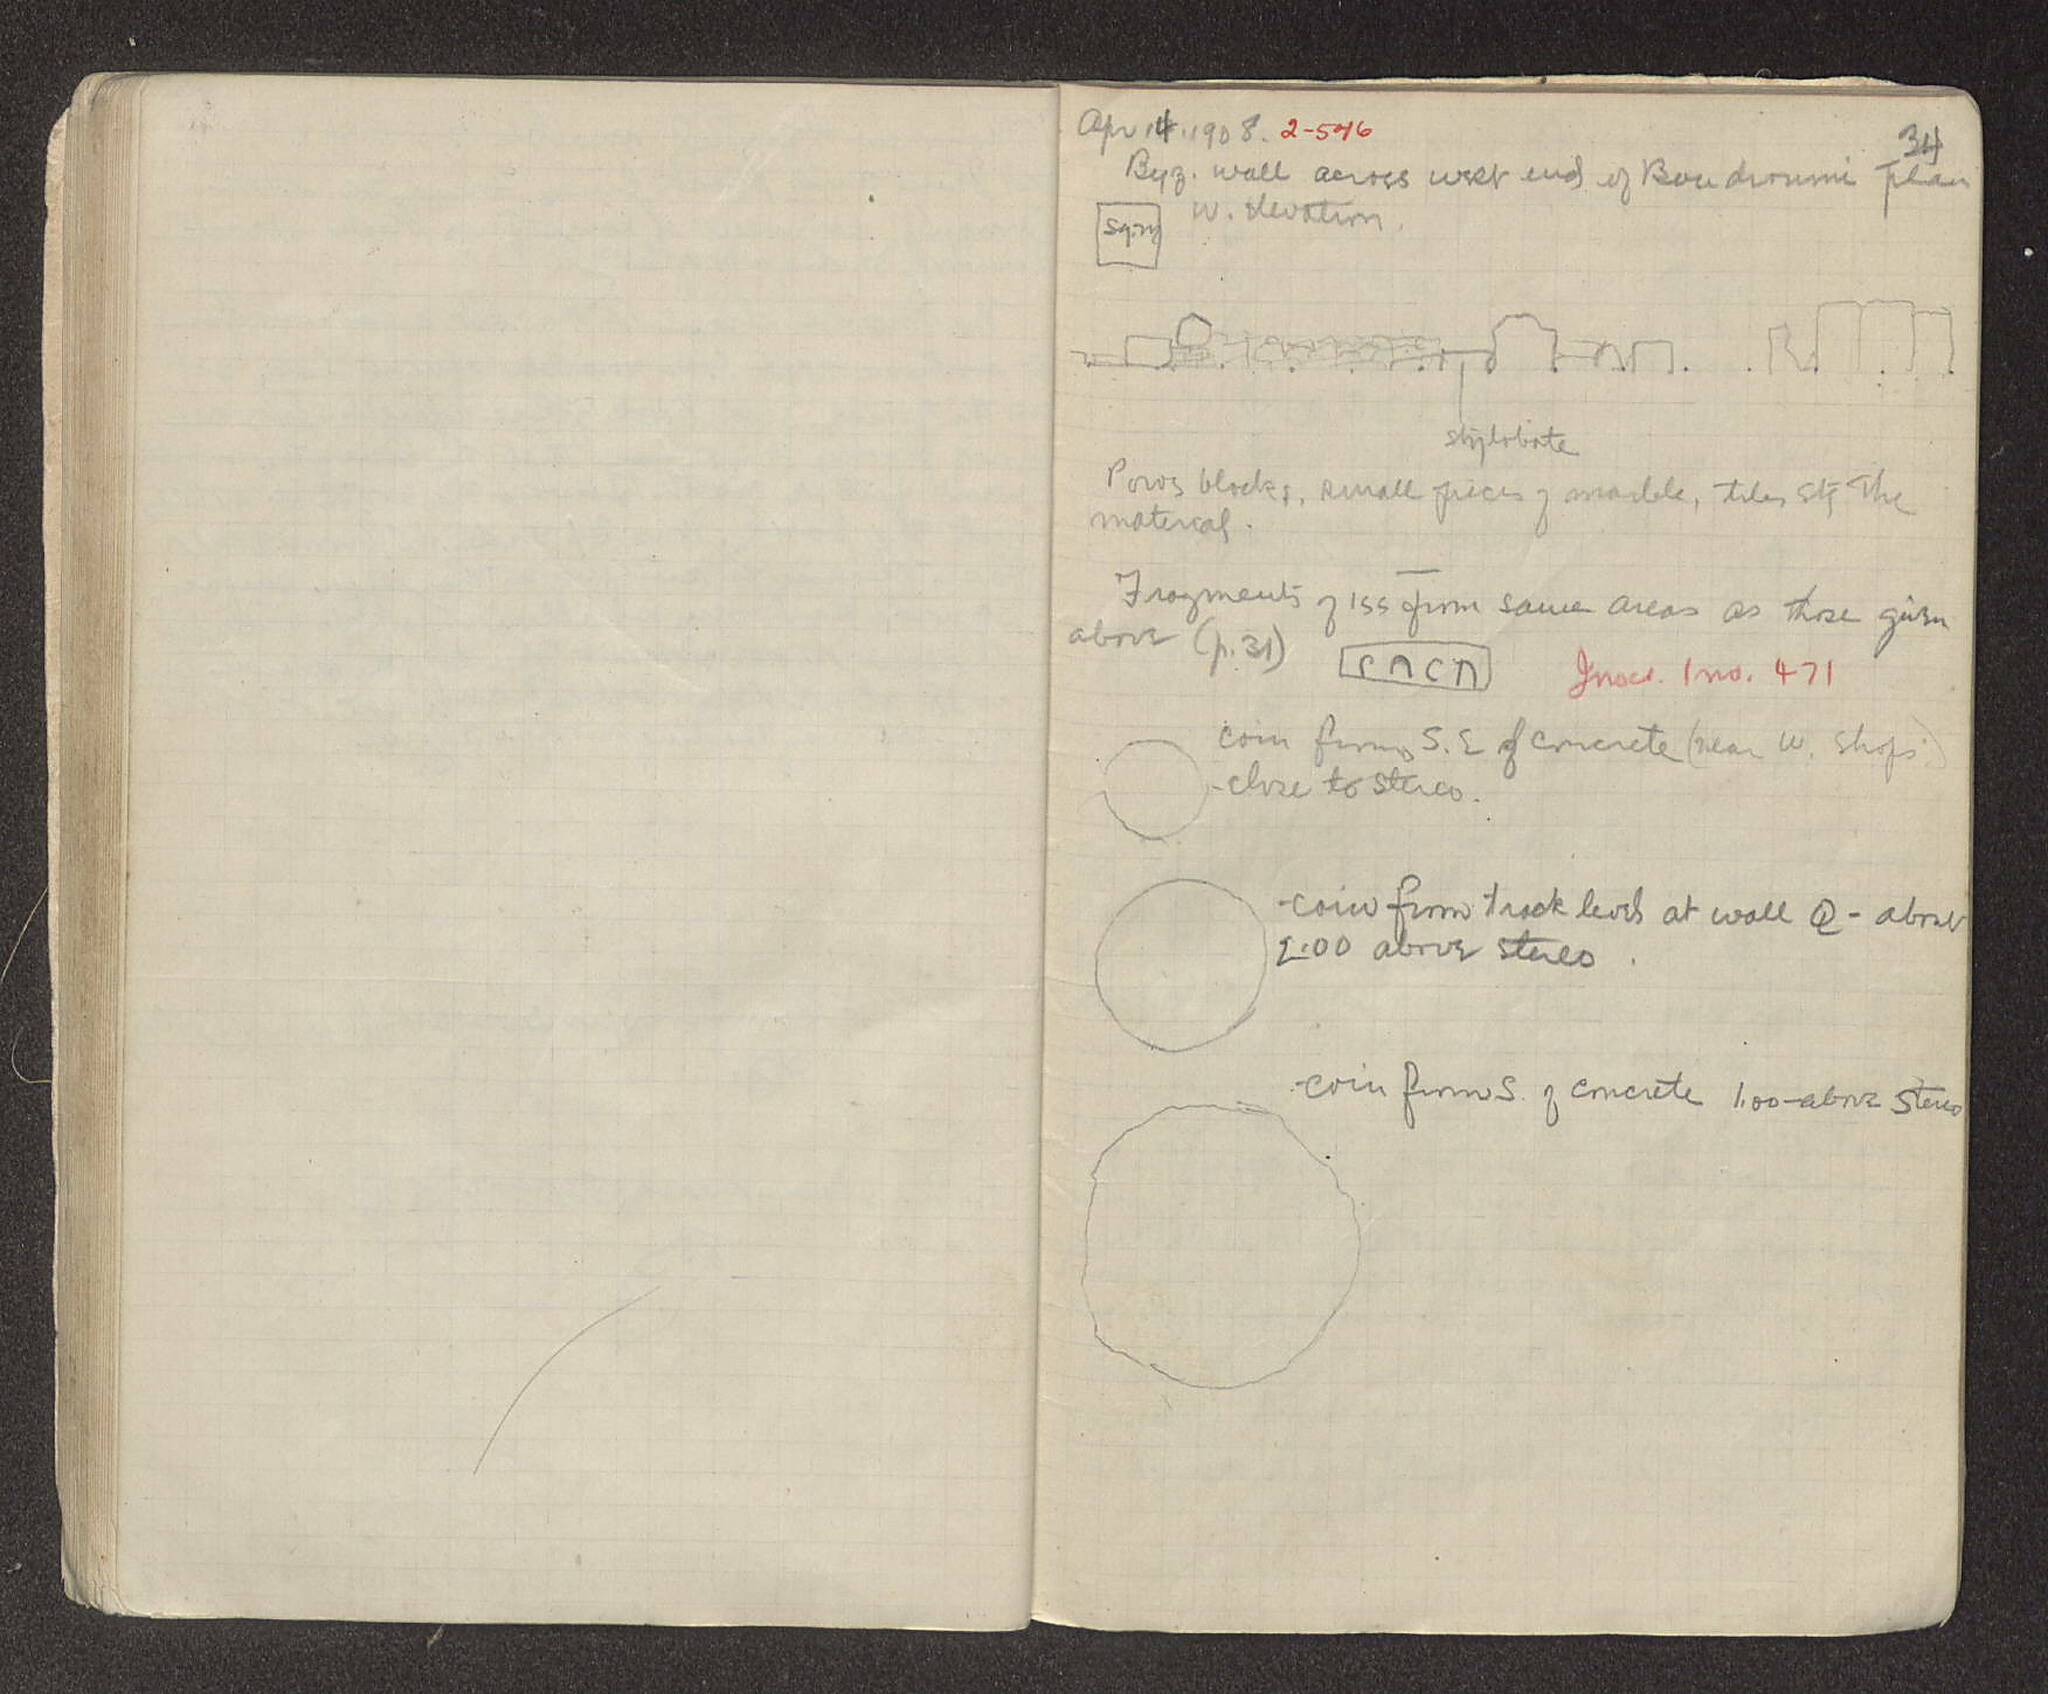 Apr 14. 1908. 2-546
34
Byz. wall across west end of Boudroumi plan
W. elevation.
Sq. m
stylobate
Poros blocks, small pieces of marble, tiles etc the
material.
Fragments of iss from same areas as those given
above (p. 31)
Inscr. Ino. 471
coin from S. E of concrete (near W. shops.)
- close to stereo.
- coin from track level at wall Q - about
2.00 above stereo.
- coin from S. of concrete 1.00 above stereo